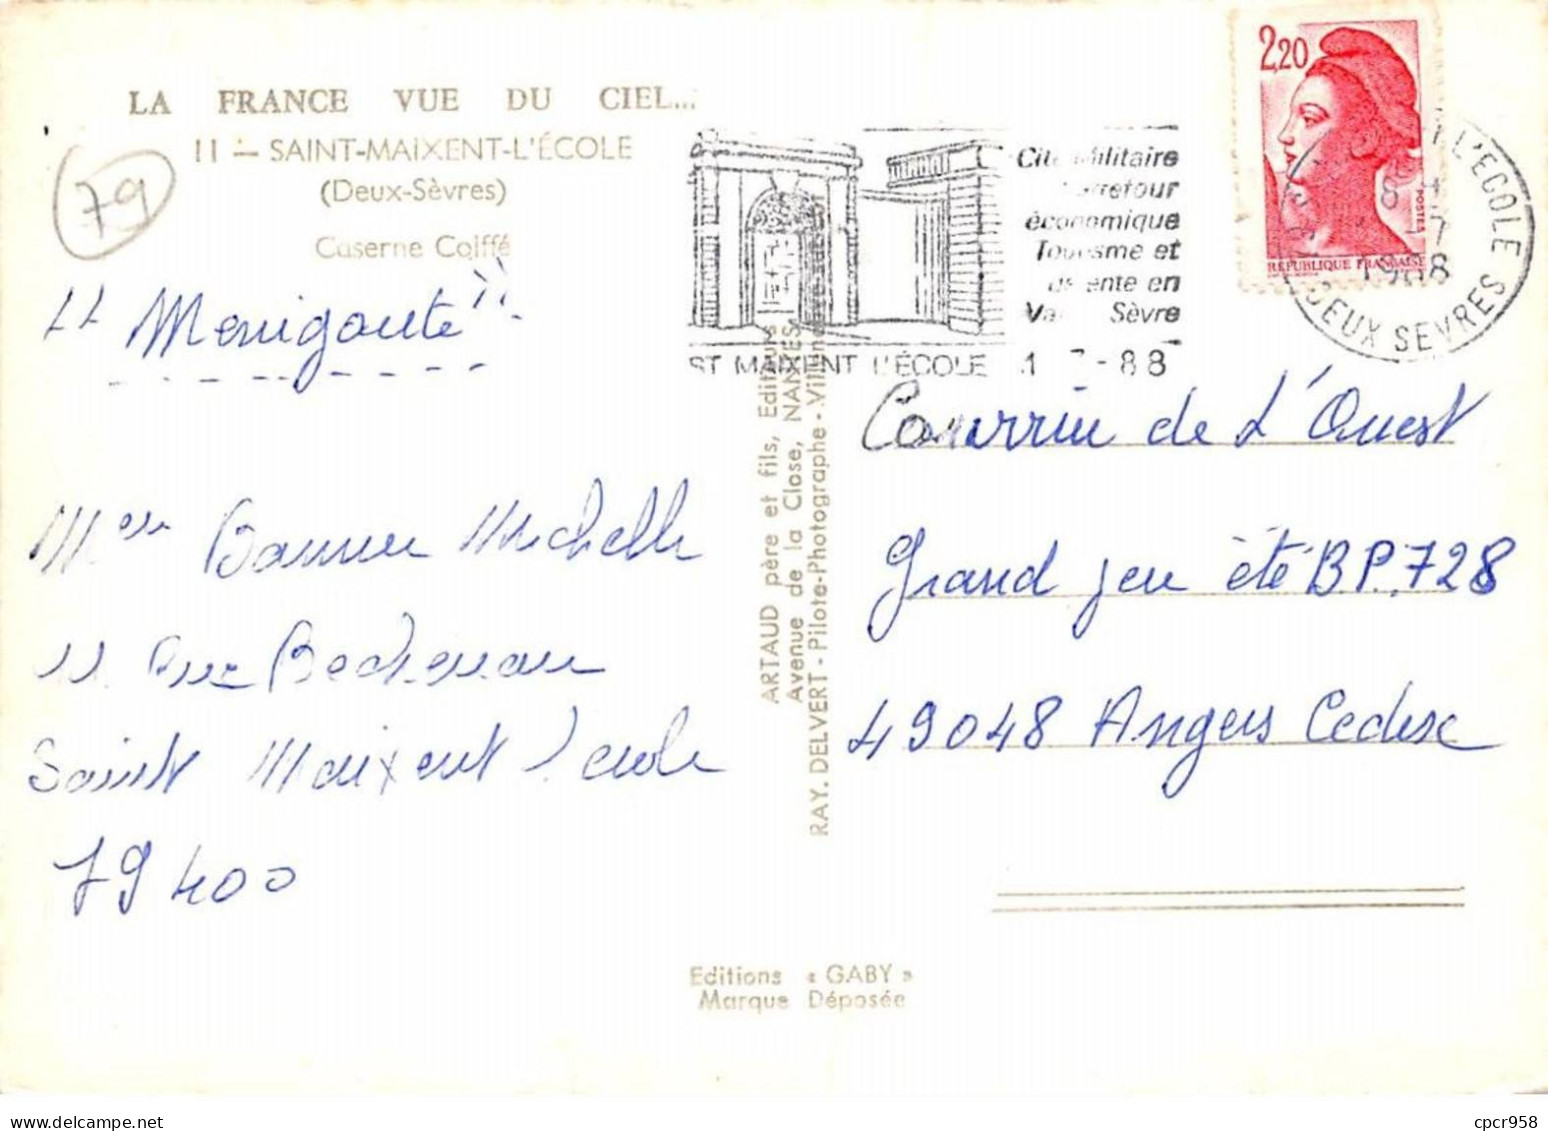 LA FRANCE VUE DU CIEL...
11 - SAINT-MAIXENT-L'ÉCOLE
(Deux-Sèvres)
Caserne Coiffé
79
"Menigoute"
Mme Michelle
11 Rue
Saint Maixent l'ecole
79400
ARTAUD père et fils, Editeurs
Avenue de la Close, NANTES
RAY. DELVERT - Pilote-Photographe - Villeneuve-sur-Lot
Editions « GABY »
Marque Déposée
Cité Militaire
Carrefour
économique
Tourisme et
détente en
Val Sèvre
ST MAIXENT L'ÉCOLE 1 7 - 88
2,20
POSTES
RÉPUBLIQUE FRANÇAISE
L'ECOLE
1988
DEUX SEVRES
Courrier de L'Ouest
Grand jeu été BP.728
49048 Angers Cedex
cpcr958